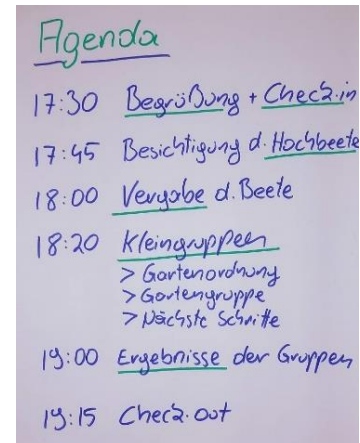 Agenda
17:30 Begrüßung + Check-in
17:45 Besichtigung d. Hochbeete
18:00 Vergabe d. Beete
18:20 Kleingruppen
> Gartenordnung
> Gartengruppe
> Nächste Schritte
19:00 Ergebnisse der Gruppen
19:15 Check-out